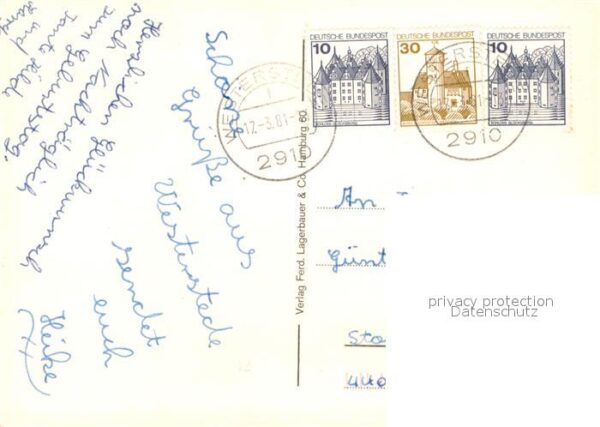 Herzlichen Glückwunsch
noch Nachträglich
zum Geburtstag.
Tante Hilde
und
Schöne
Grüße aus
Westerstede
sendet
euch
Heike
DEUTSCHE BUNDESPOST
10
DEUTSCHE BUNDESPOST
30
DEUTSCHE BUNDESPOST
10
WESTERSTEDE
12.-3.81
2910
WESTERSTEDE
2910
Verlag Ferd. Lagerbauer & Co. Hamburg 60
An
Günt
privacy protection
Datenschutz